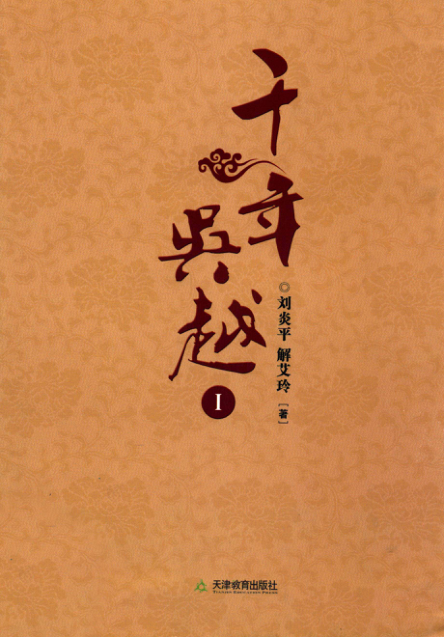 千年
吳越
I
◎刘炎平 解艾玲 [著]
天津教育出版社
TIANJIN EDUCATION PRESS